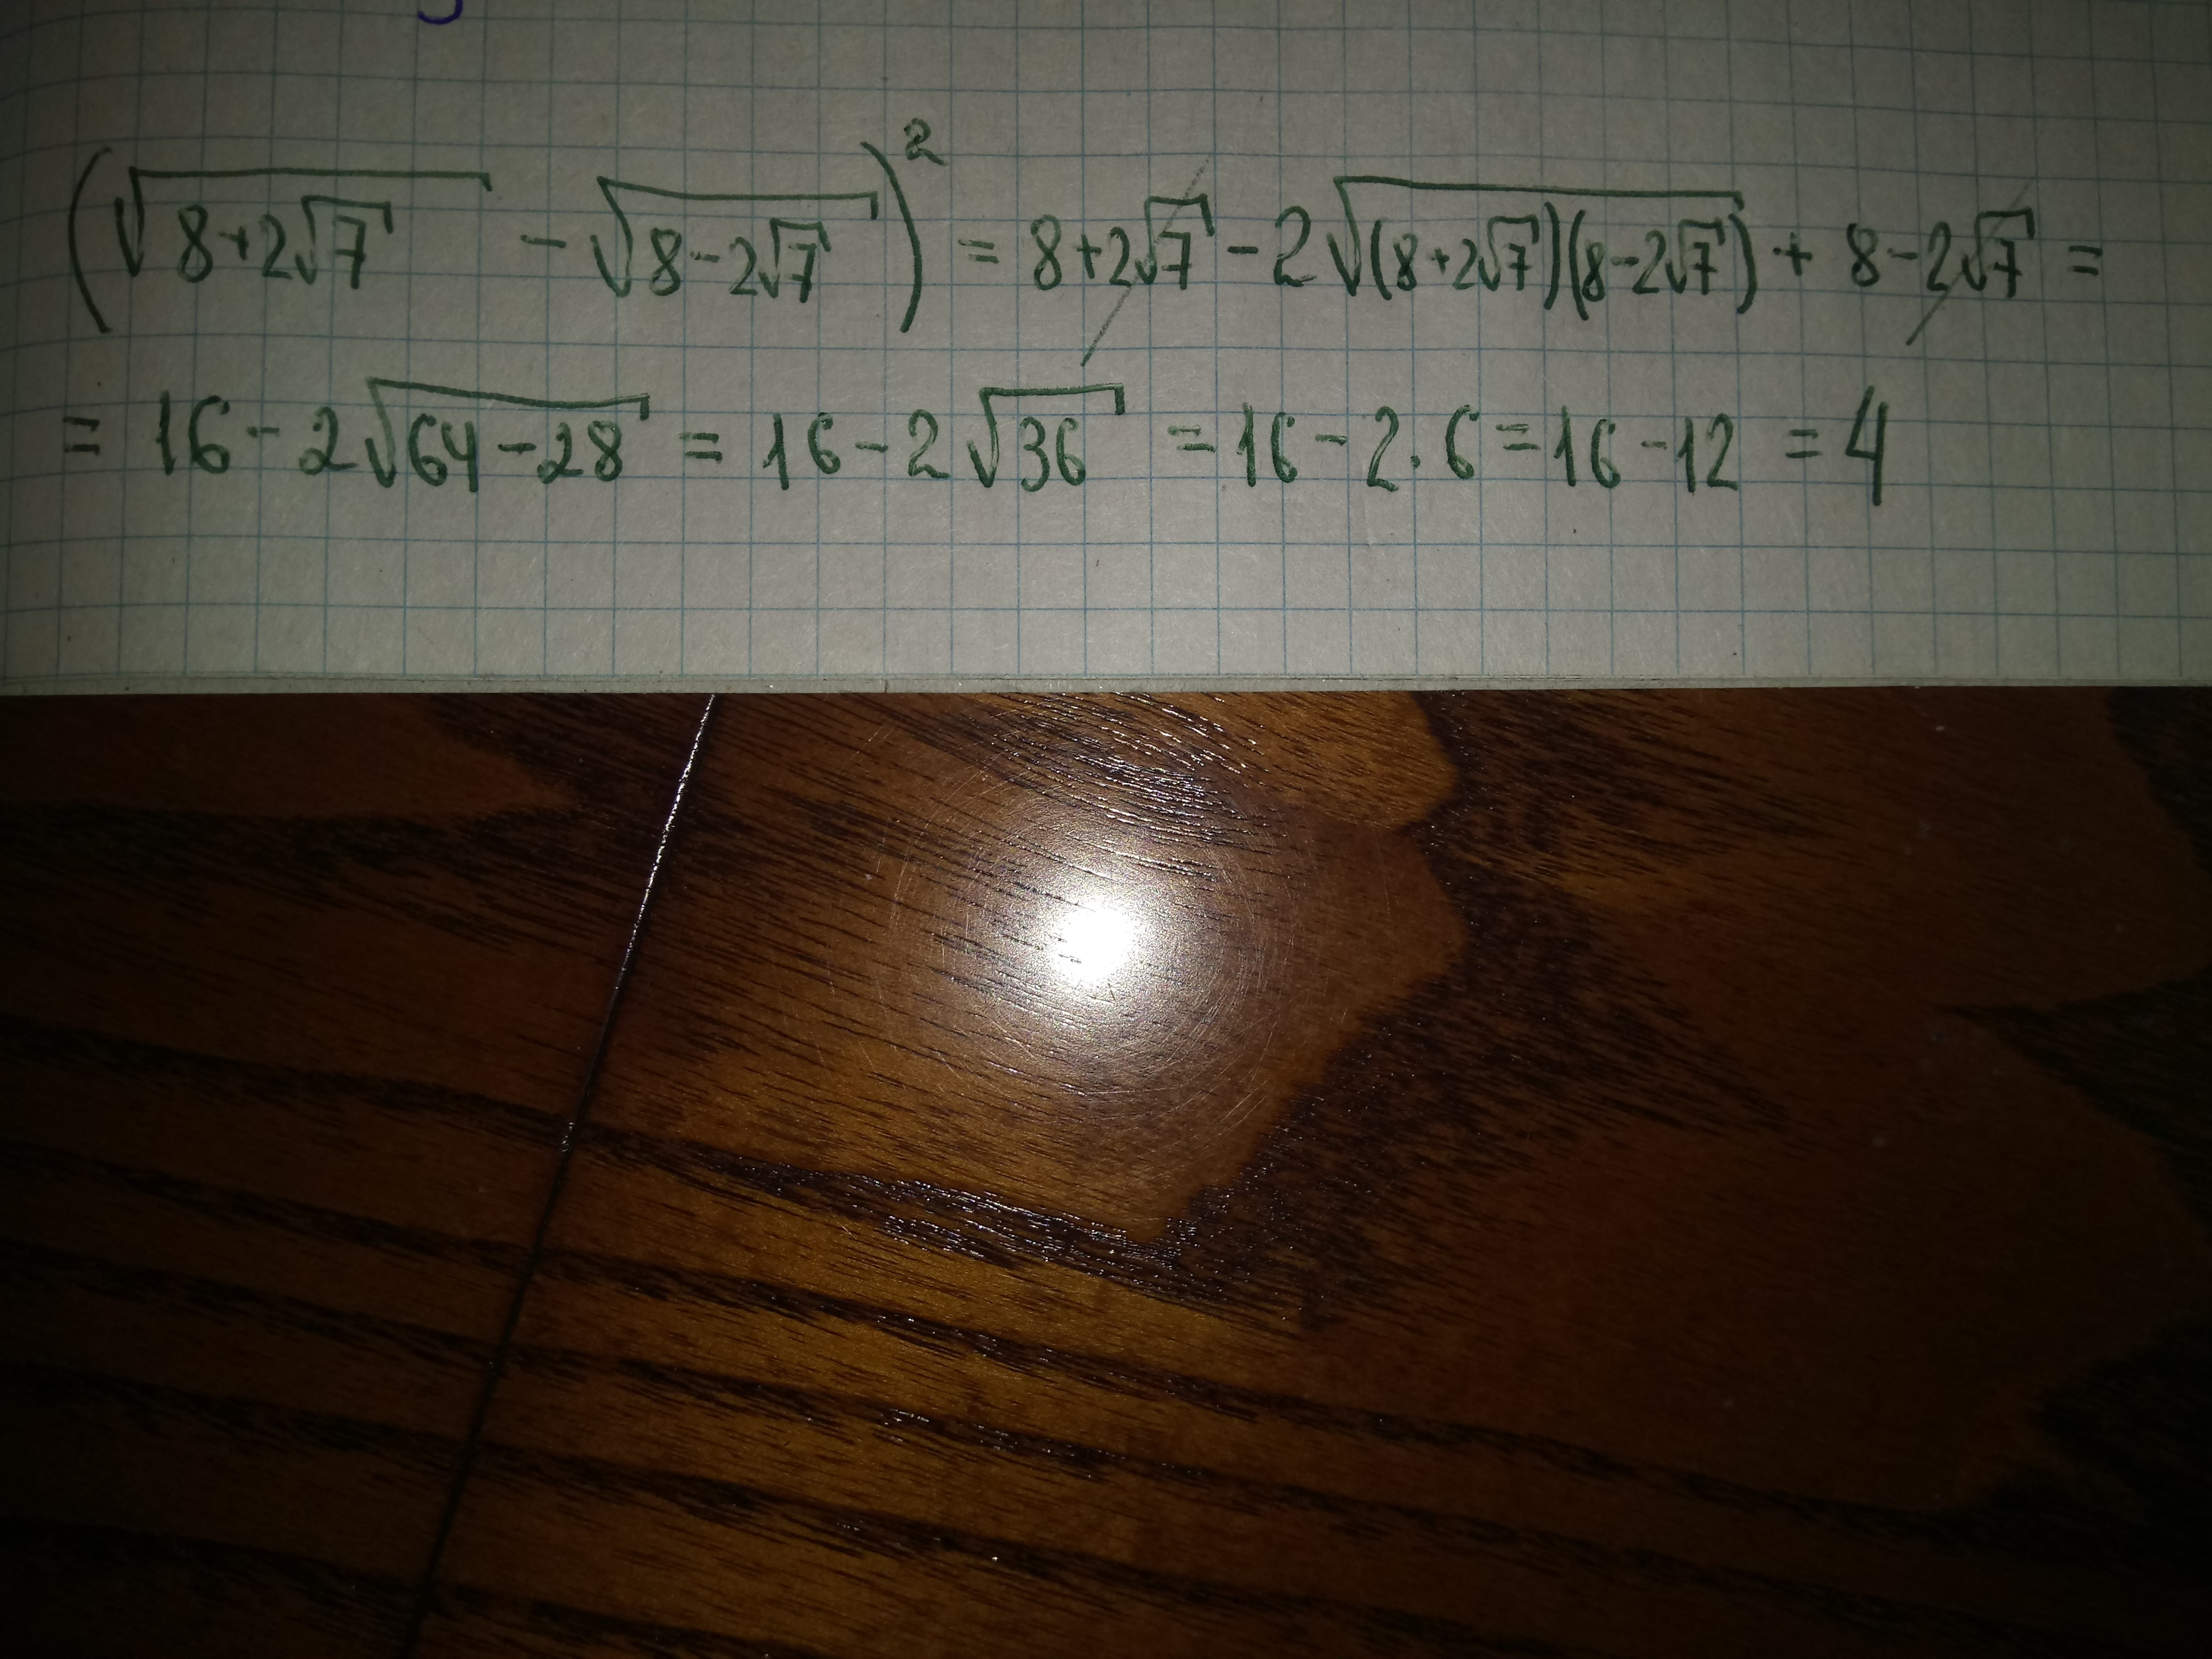 (√(8+2√7) - √(8-2√7))² = 8+2√7 - 2√((8+2√7)(8-2√7)) + 8-2√7 =
= 16 - 2√(64-28) = 16 - 2√36 = 16 - 2·6 = 16 - 12 = 4